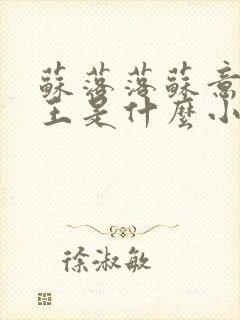 蘇落落蘇意
主是什麼小
徐淑敏